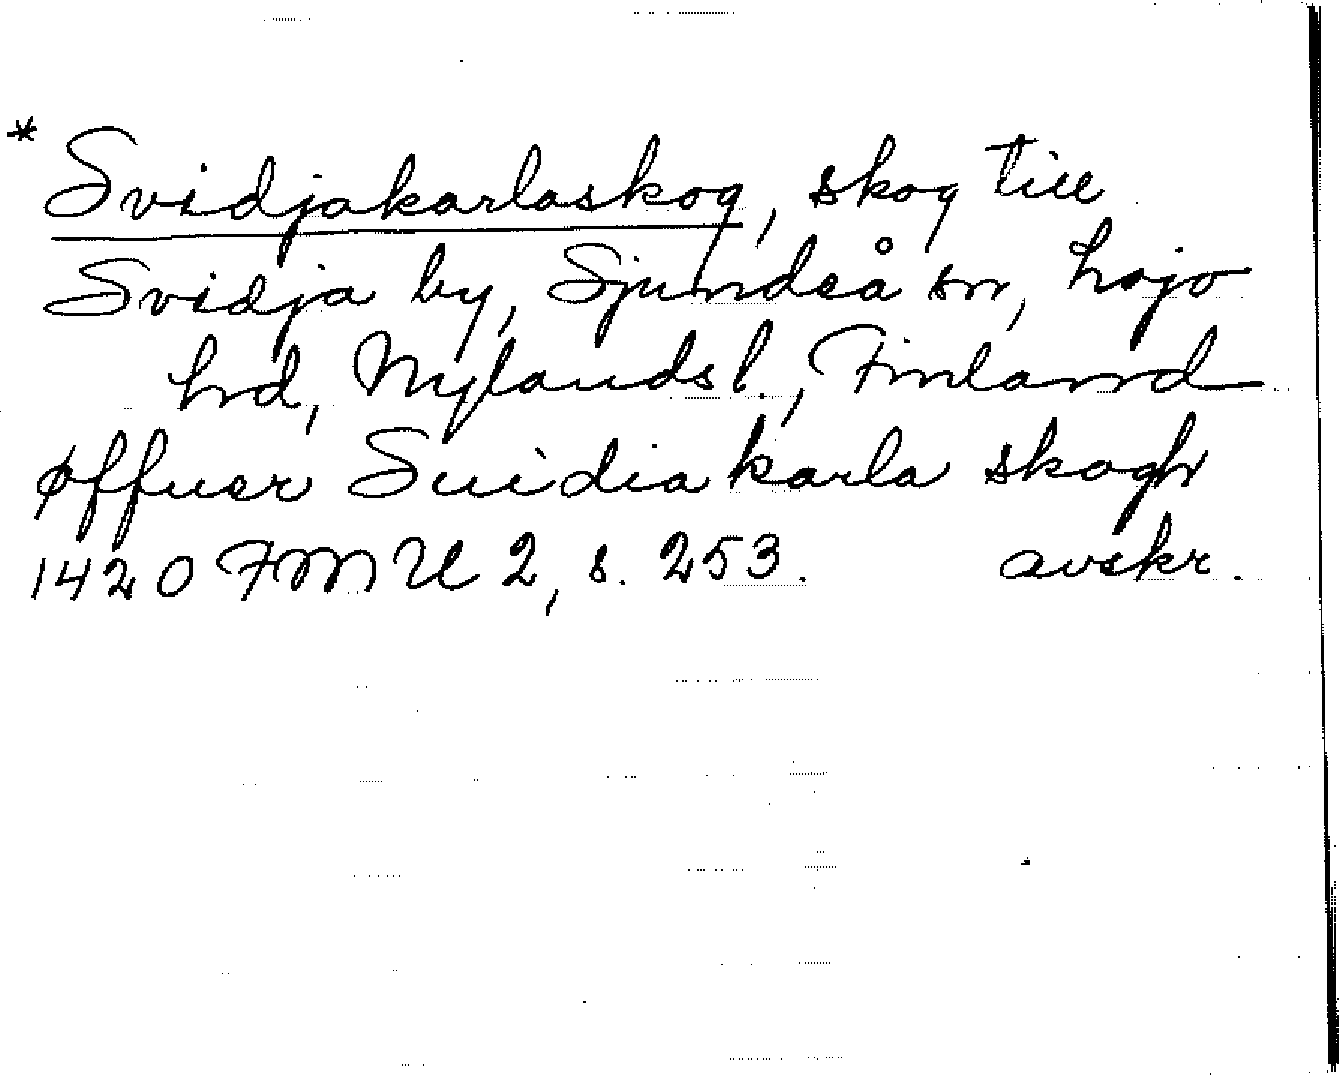 * Svidjakarlaskog, skog till
Svidja by, Sjundeå sn, Lojo
hd, Nylands l., Finland
øffuer Suidia karla skogh
1420 FMU 2, s. 253. avskr.